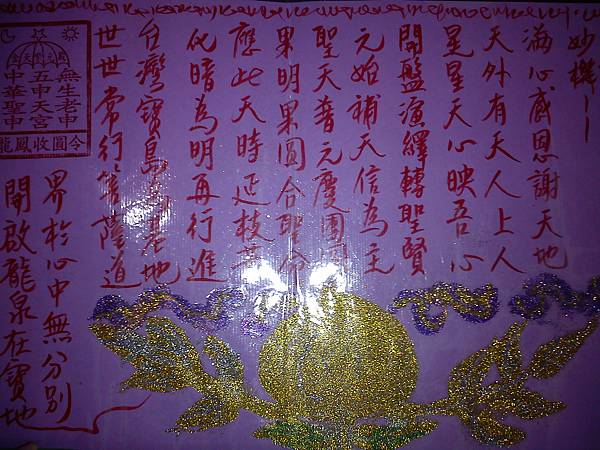 妙機——
滿心感恩謝天地
天外有天人上人
星星天心映吾心
開盤演繹轉聖賢
元始補天信為主
聖天普元慶團
果明果圓合聖命
應此天時延枝
化暗為明再行進
台灣寶島 基地
世世常行菩薩道
界於心中無分別
開啟龍泉在寶地
無生老中
五中天宮
中華聖中
令圓收鳳龍